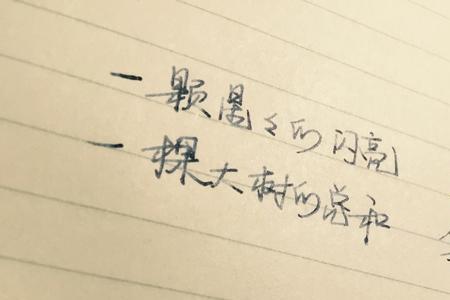 一颗星星的闪亮
一棵大树的总和